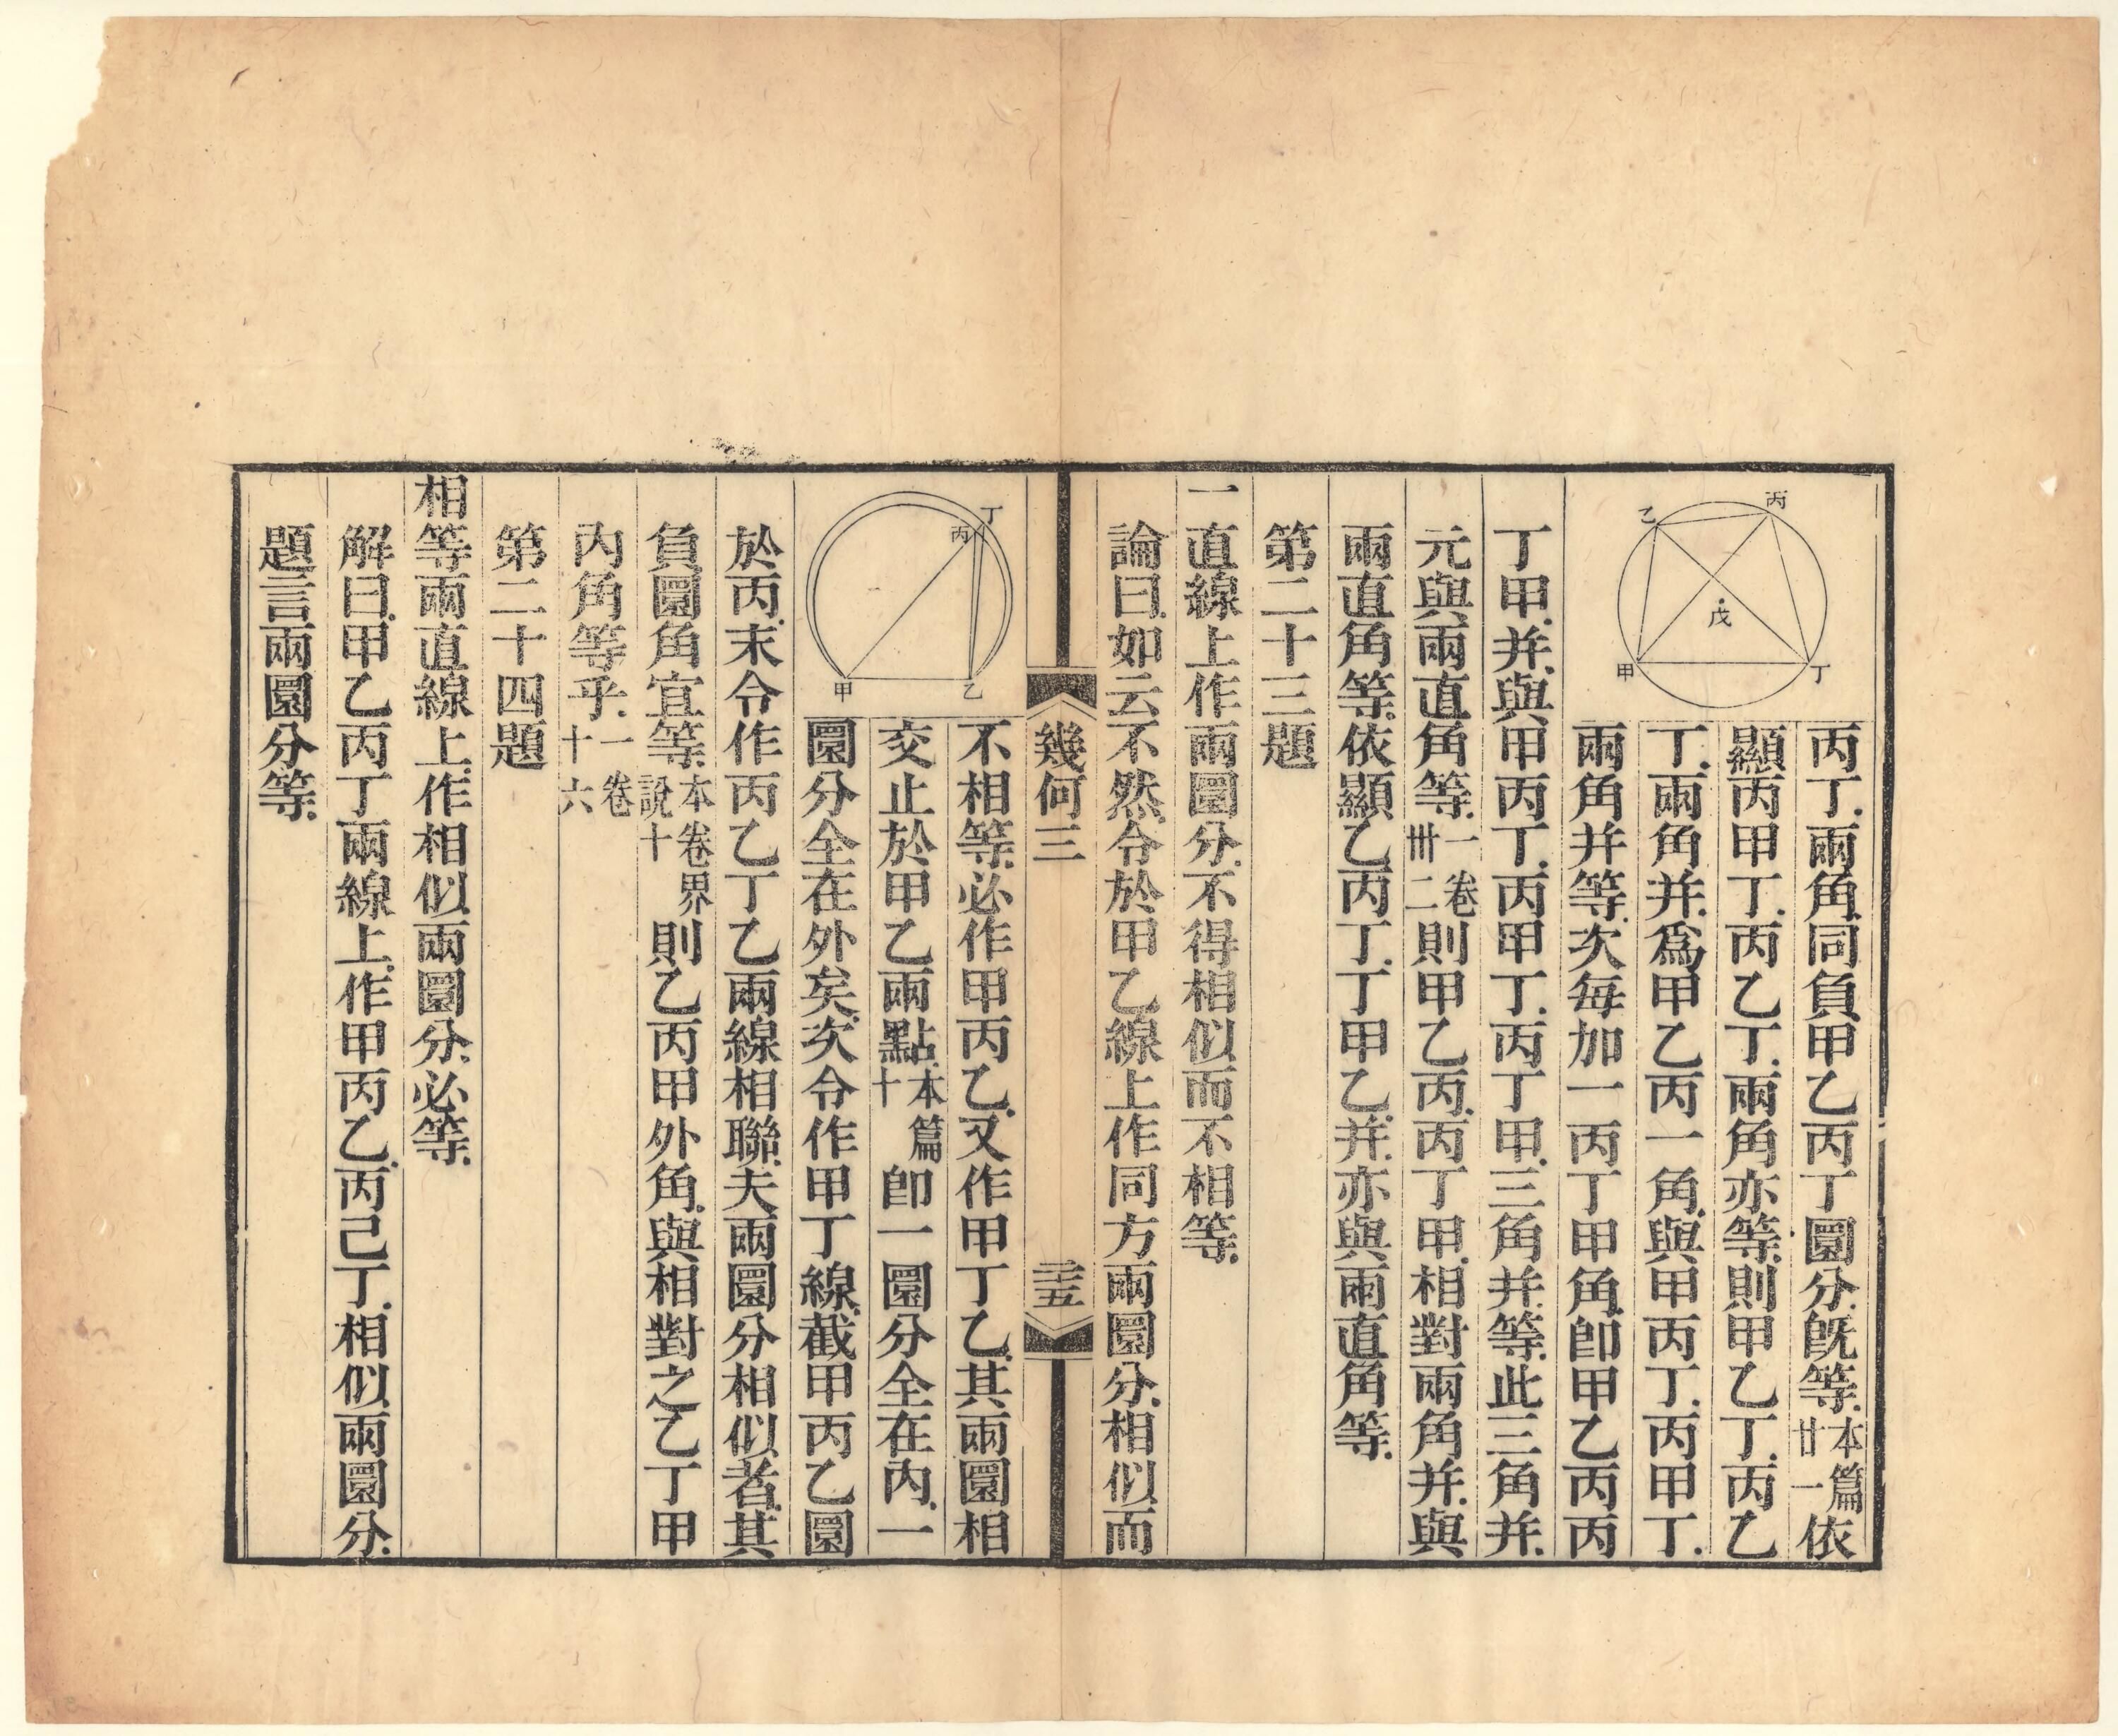 丙
乙
戊
甲
丁
丙丁.兩角.同負甲乙丙丁圜分.旣等.本篇廿一依
顯丙甲丁.丙乙丁.兩角亦等.則甲乙丁.丙乙
丁.兩角并.爲甲乙丙一角.與甲丙丁.丙甲丁.
兩角并等.次每加一丙丁甲角.卽甲乙丙丙
丁甲.并.與甲丙丁.丙甲丁.丙丁甲.三角并等.此三角并.
元與兩直角等.一卷卅二則甲乙丙.丙丁甲.相對兩角并.與
兩直角等.依顯乙丙丁.丁甲乙.并.亦與兩直角等.
第二十三題
一直線上作兩圜分.不得相似而不相等.
論曰.如云不然.令於甲乙線上作同方兩圜分.相似而
幾何三
三十五
丁
丙
甲
乙
不相等.必作甲丙乙.又作甲丁乙.其兩圜相
交止於甲乙兩點.本篇十卽一圜分全在內.一
圜分全在外矣.次令作甲丁線.截甲丙乙圜
於丙.末令作丙乙丁乙兩線相聯.夫兩圜分相似者.其
負圜角宜等.本卷界說十則乙丙甲外角.與相對之乙丁甲
內角等乎.一卷十六
第二十四題
相等兩直線上.作相似兩圜分.必等.
解曰.甲乙丙丁兩線上.作甲丙乙.丙己丁.相似兩圜分.
題言兩圜分等.